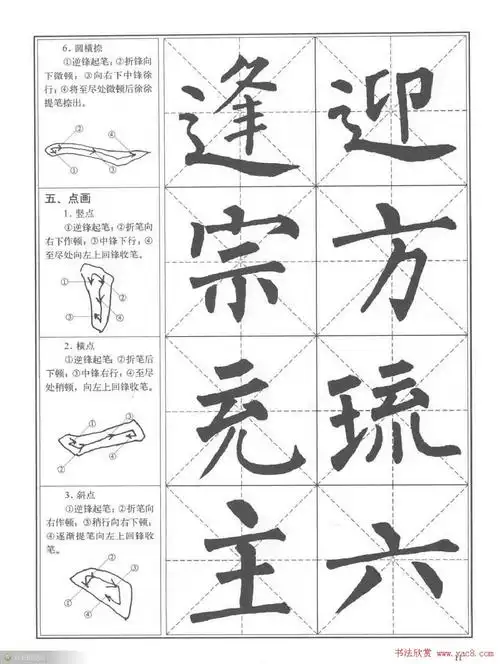 6. 圆横捺
①逆锋起笔；②折锋向
下微顿；③向右下中锋徐
行；④将至尽处微顿后徐徐
提笔捺出。
② ④
① ③
逢 迎
五、点画
1. 竖点
①逆锋起笔；②折笔向
右下作顿；③中锋下行；④
至尽处向左上回锋收笔。
① ②
③
④
宗 方
2. 横点
①逆锋起笔；②折笔后
下顿；③中锋右行；④至尽
处稍顿，向左上回锋收笔。
① ③
② ④
充 琉
3. 斜点
①逆锋起笔；②折笔向
右作顿；③稍行向右下顿；
④逐渐提笔向左上回锋收
笔。
② ③
① ④
主 六
书法欣赏 www.yac8.com
11